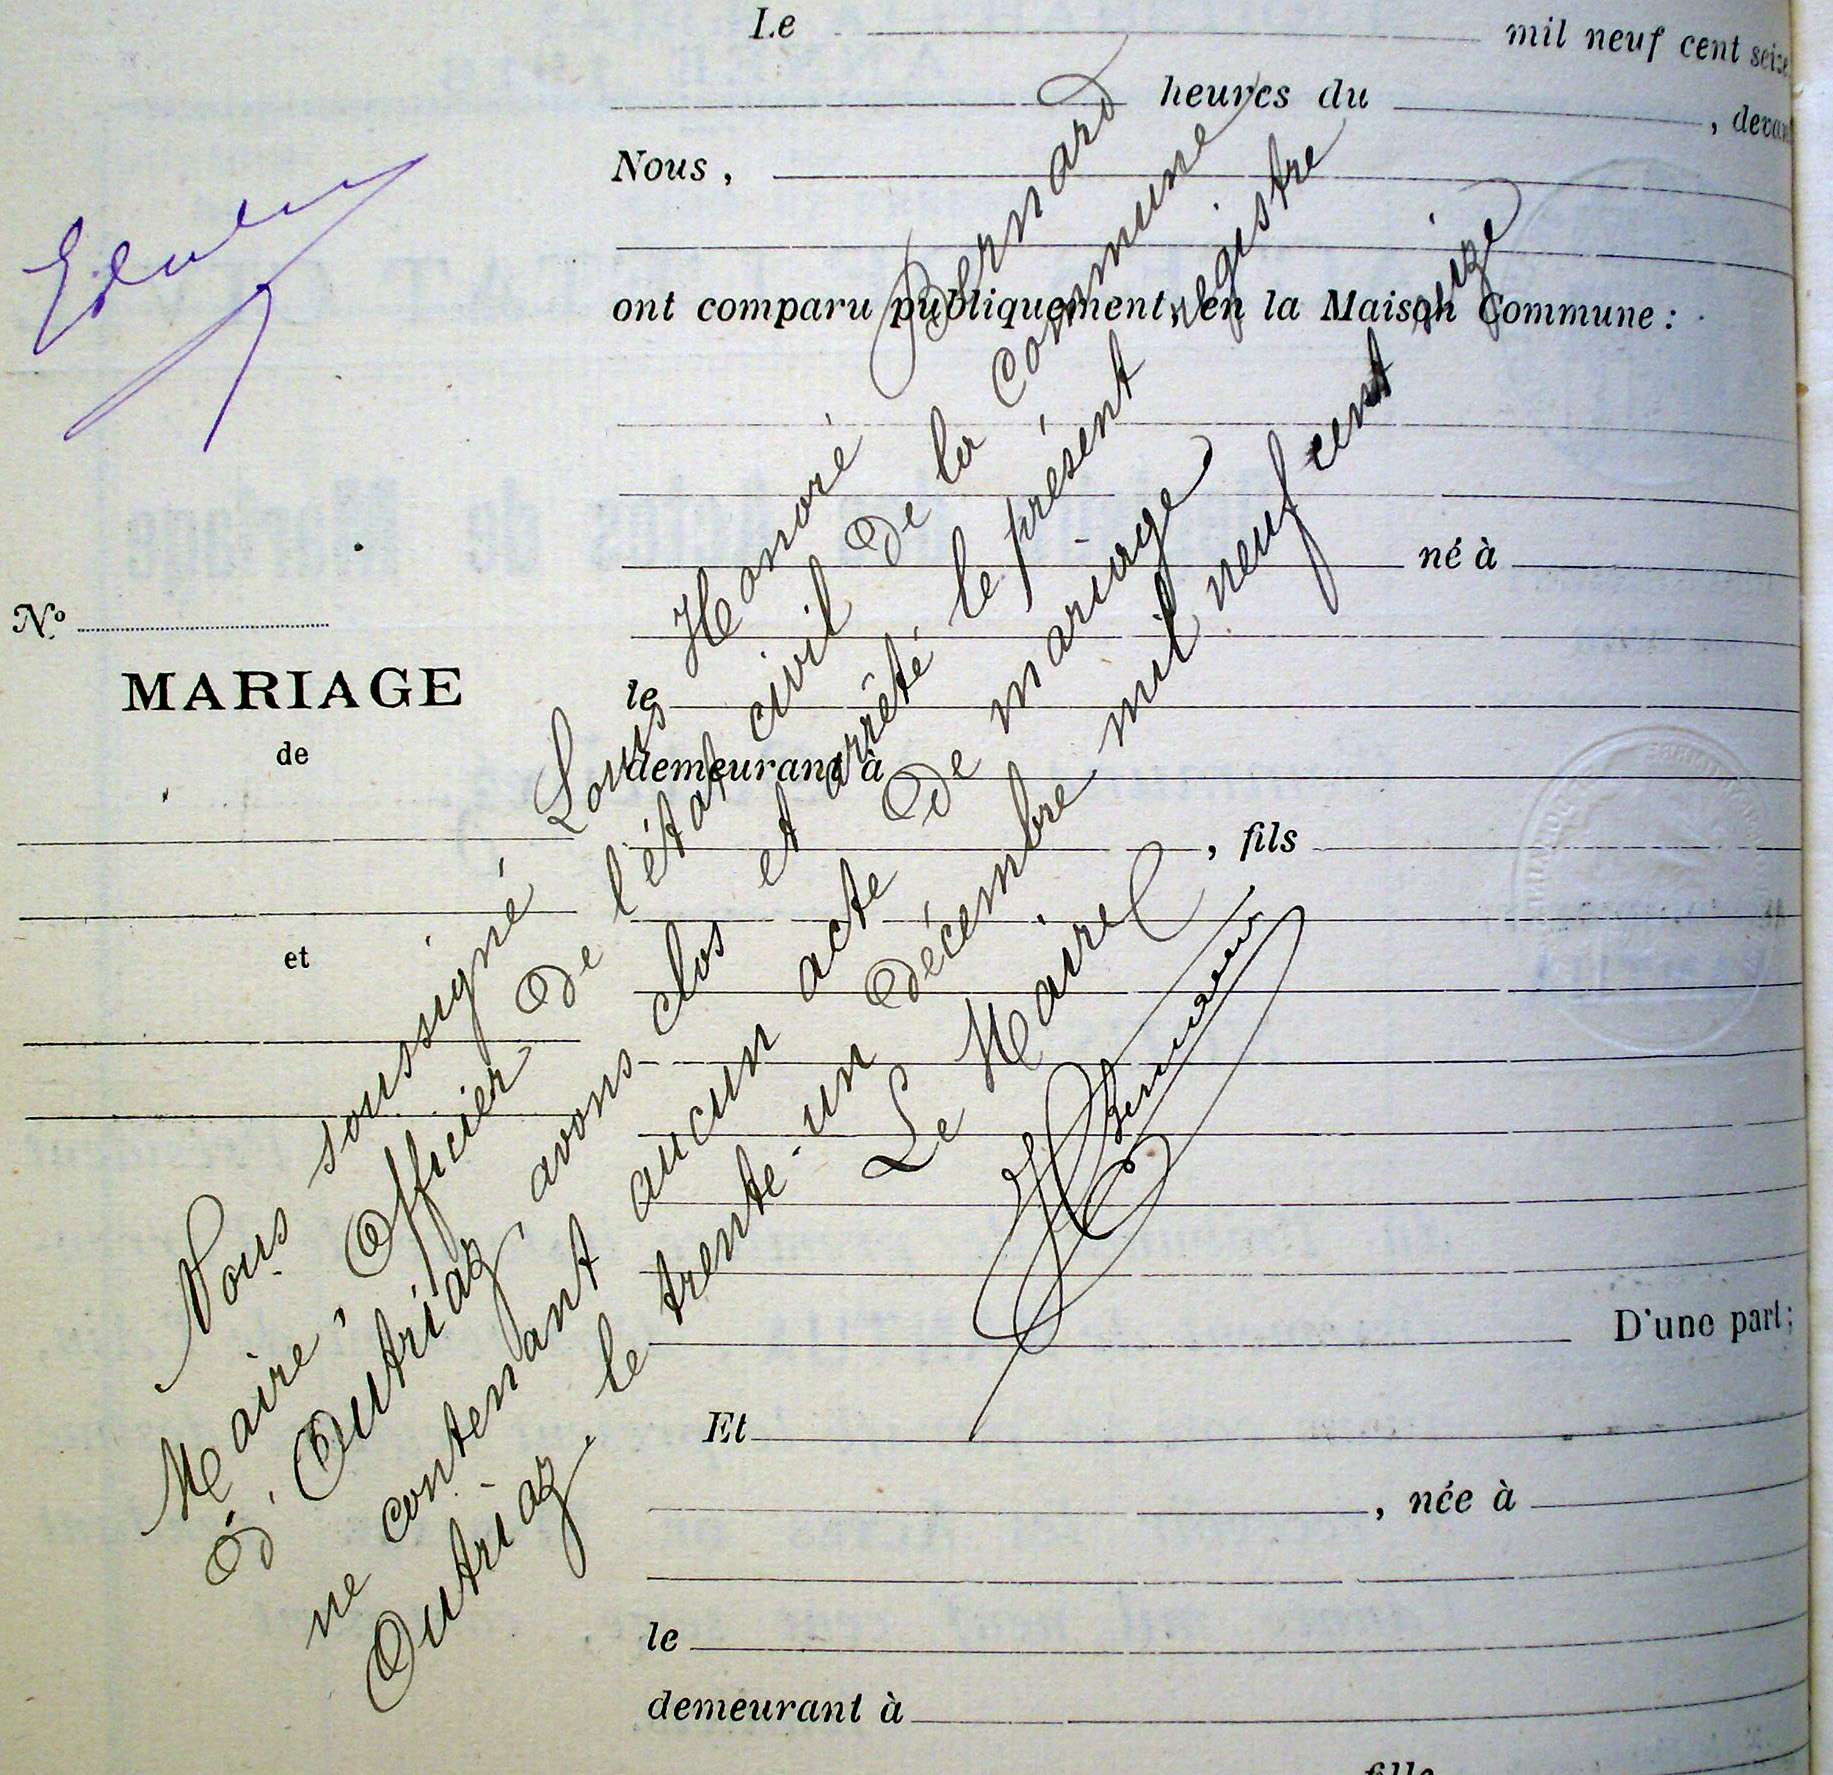 Le mil neuf cent seize,
heures du , devant
Nous,
ont comparu publiquement, en la Maison Commune :
né à
le
demeurant à
, fils
D'une part;
Et
, née à
le
demeurant à
fille
N°
MARIAGE
de
et
Nous soussigné Louis Honoré Bernard
Maire, Officier de l'état civil de la commune
d'Outriaz, avons clos et arrêté le présent registre
ne contenant aucun acte de mariage
Outriaz le trente-un décembre mil neuf cent seize
Le Maire
HBernard